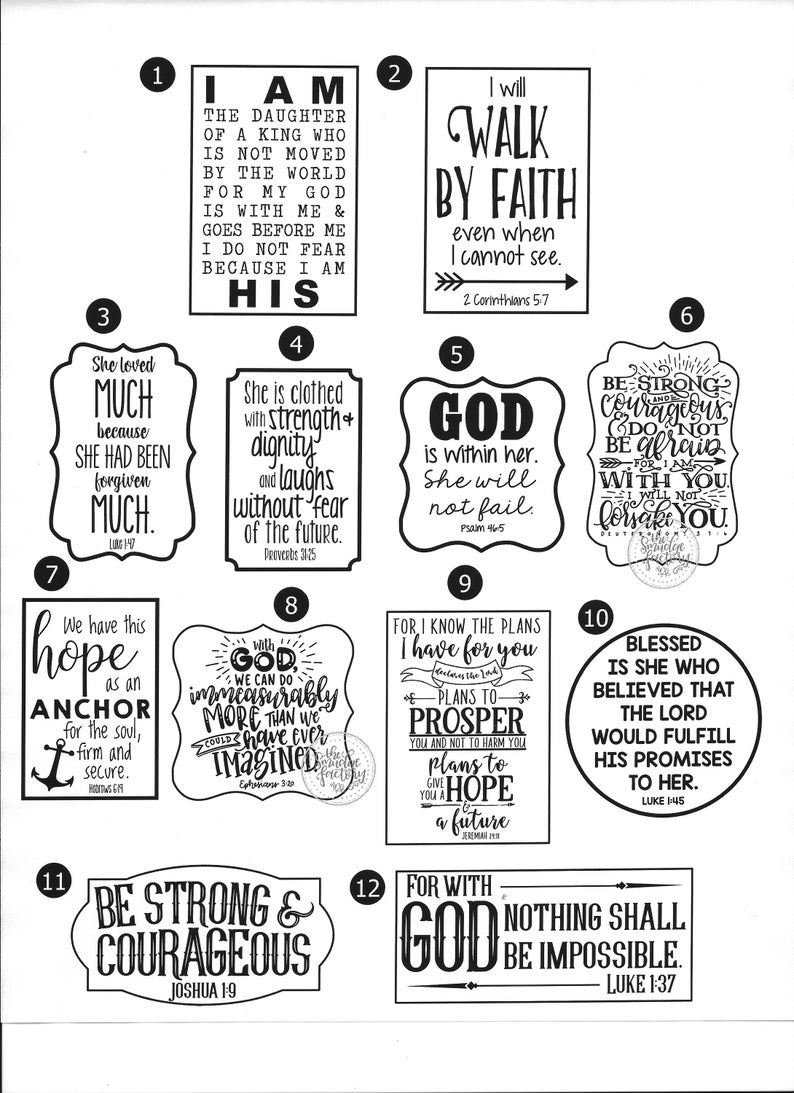 1
I AM
THE DAUGHTER
OF A KING WHO
IS NOT MOVED
BY THE WORLD
FOR MY GOD
IS WITH ME &
GOES BEFORE ME
I DO NOT FEAR
BECAUSE I AM
HIS
2
I will
WALK
BY FAITH
even when
I cannot see.
2 Corinthians 5:7
3
She loved
MUCH
because
SHE HAD BEEN
forgiven
MUCH.
Luke 1:47
4
She is clothed
with strength &
dignity
and laughs
without fear
of the future.
Proverbs 31:25
5
GOD
is within her.
She will
not fail.
Psalm 46:5
6
BE STRONG
AND
courageous
& DO NOT
BE afraid
FOR I AM
WITH YOU.
I WILL NOT
forsake YOU.
DEUTERONOMY 31:6
the
Smudge
factory
7
We have this
hope
as an
ANCHOR
for the soul,
firm and
secure.
Hebrews 6:19
8
With
GOD,
WE CAN DO
immeasurably
MORE THAN WE
COULD have ever
IMAGINED
Ephesians 3:20
the
Smudge
factory
9
FOR I KNOW THE PLANS
I have for you
declares the Lord
PLANS TO
PROSPER
YOU AND NOT TO HARM YOU
plans to
GIVE YOU A HOPE
&
a future
JEREMIAH 29:11
10
BLESSED
IS SHE WHO
BELIEVED THAT
THE LORD
WOULD FULFILL
HIS PROMISES
TO HER.
LUKE 1:45
11
BE STRONG &
COURAGEOUS
JOSHUA 1:9
12
FOR WITH
GOD NOTHING SHALL
BE IMPOSSIBLE.
LUKE 1:37